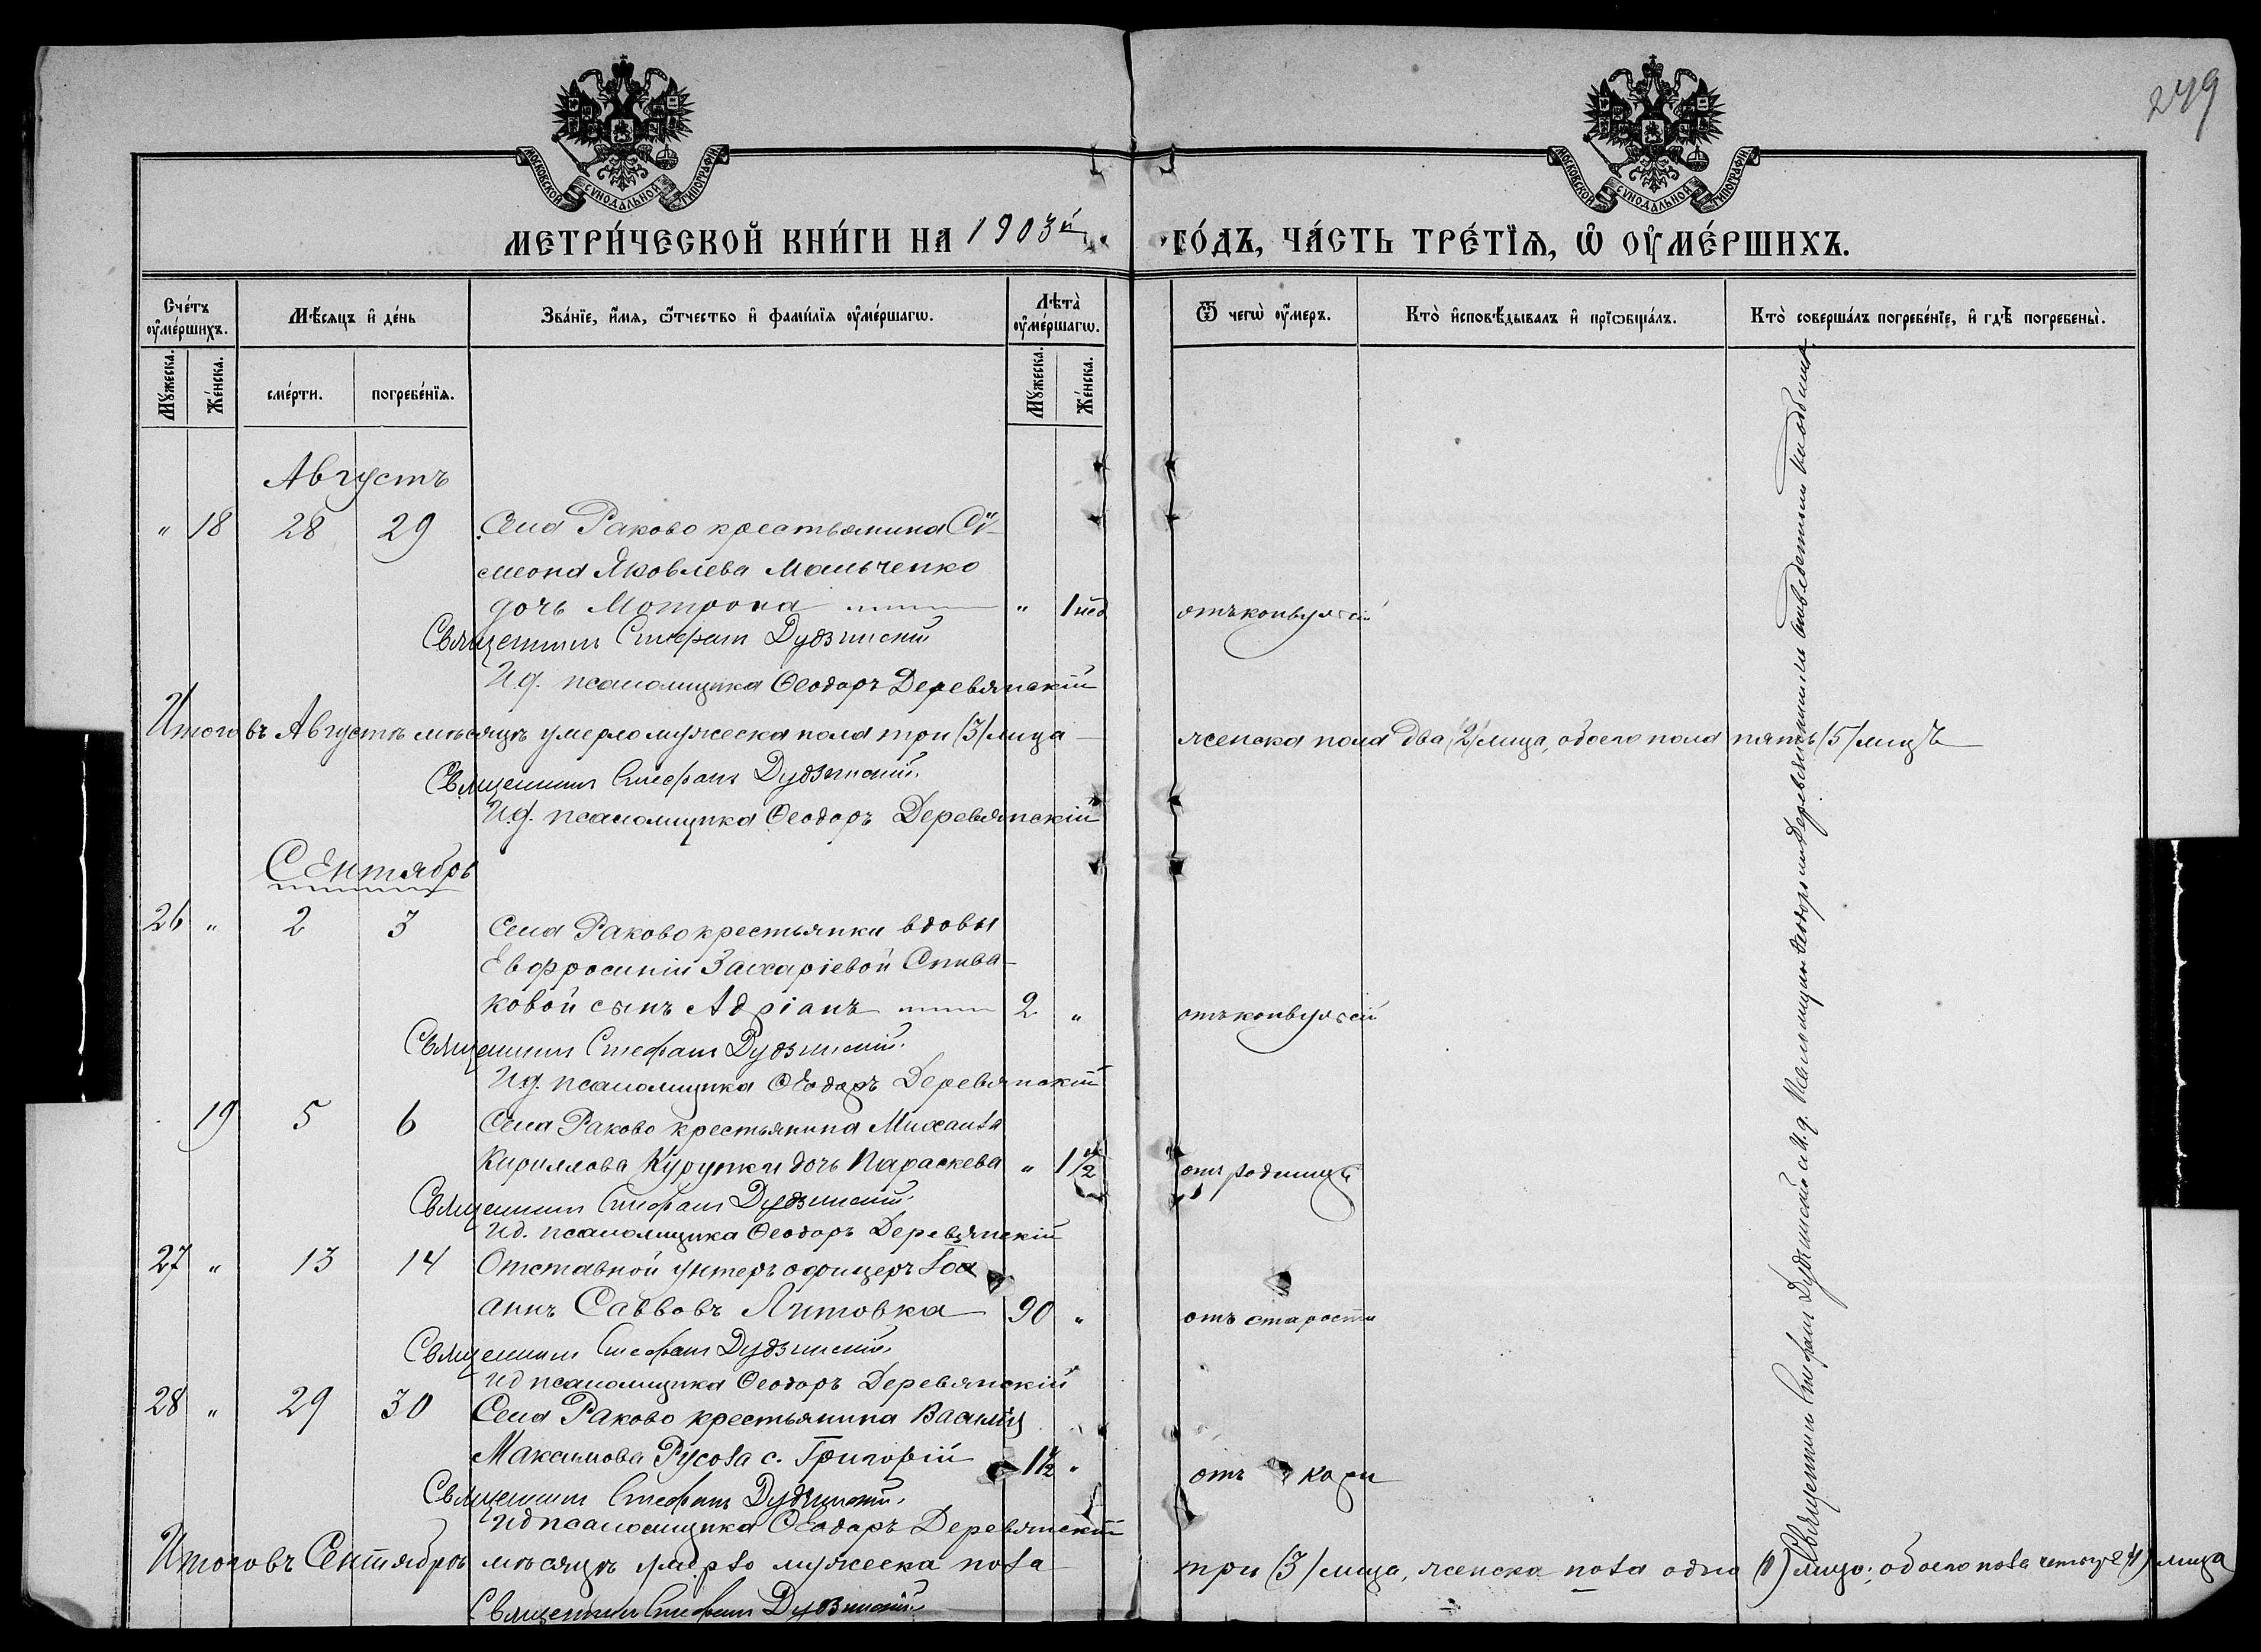 249
МОСКОВСКОЙ СѴНОДАЛЬНОЙ ТИПОГРАФІИ
МОСКОВСКОЙ СѴНОДАЛЬНОЙ ТИПОГРАФІИ
МЕТРИ́ЧЕСКОЙ КНИ́ГИ НА 1903й ГО́ДЪ, ЧА́СТЬ ТРЕ́ТІѦ, Ѡ҆ ОУ҆МЕ́РШИХЪ.
Сче́тъ оу҆ме́ршихъ.
Мꙋ́жеска.
Же́нска.
Мѣ́сяцъ и҆ де́нь
сме́рти.
погребе́нїѧ.
Зва́нїе, и҆́мѧ, ѻ҆́тчество и҆ фами́лїѧ оу҆ме́ршагѡ.
Лѣта̀ оу҆ме́ршагѡ.
Мꙋ́жеска.
Же́нска.
Ѿ чегѡ̀ оу҆́меръ.
Кто̀ и҆сповѣ́дывалъ и҆ прїѡбща́лъ.
Кто̀ соверша́лъ погребе́нїе, и҆ гдѣ̀ погребены̀.
Августъ
" 18 28 29 Села Раково крестьянина Сѵ-
меона Яковлева Мальченко
дочь Мотрона " 1 нед отъ конвульсій
Священникъ Стефанъ Дудзинскій
И.д. псаломщика Ѳеодоръ Деревянскій
Итого въ Августѣ мѣсяцѣ умерло мужеска пола три (3) лица женска пола два (2) лица, обоего пола пять (5) лицъ
Священникъ Стефанъ Дудзинскій.
И.д. псаломщика Ѳеодоръ Деревянскій
Сентябрь
26 " 2 3 Села Раково крестьянки вдовы
Евфросиніи Захаріевой Спива-
ковой сынъ Адріанъ 2 " отъ конвульсій
Священникъ Стефанъ Дудзинскій.
И.д. псаломщика Ѳеодоръ Деревянскій
19 5 6 Села Раково крестьянина Михаила
Кириллова дочь Параскева " 1½ отъ родимца
Священникъ Стефанъ Дудзинскій.
И.д. псаломщика Ѳеодоръ Деревянскій
27 " 13 14 Отставной унтеръ офицеръ Іоа
аннъ Саввовъ Литовка 90 " отъ старости
Священникъ Стефанъ Дудзинскій.
И.д псаломщика Ѳеодоръ Деревянскій
28 " 29 30 Села Раково крестьянина Василія
Максимова Русола с. Григорій 1½ " отъ кори
Священникъ Стефанъ Дудзинскій.
И.д псаломщика Ѳеодоръ Деревянскій
Итого въ Сентябрѣ мѣсяцѣ умерло мужеска пола три (3) лица, женска пола одно (1) лицо; обоего пола четыре (4) лица
Священникъ Стефанъ Дудзинскій
Священникъ Стефанъ Дудзинскій а И.д. Псаломщик Ѳеодоръ Деревянскій